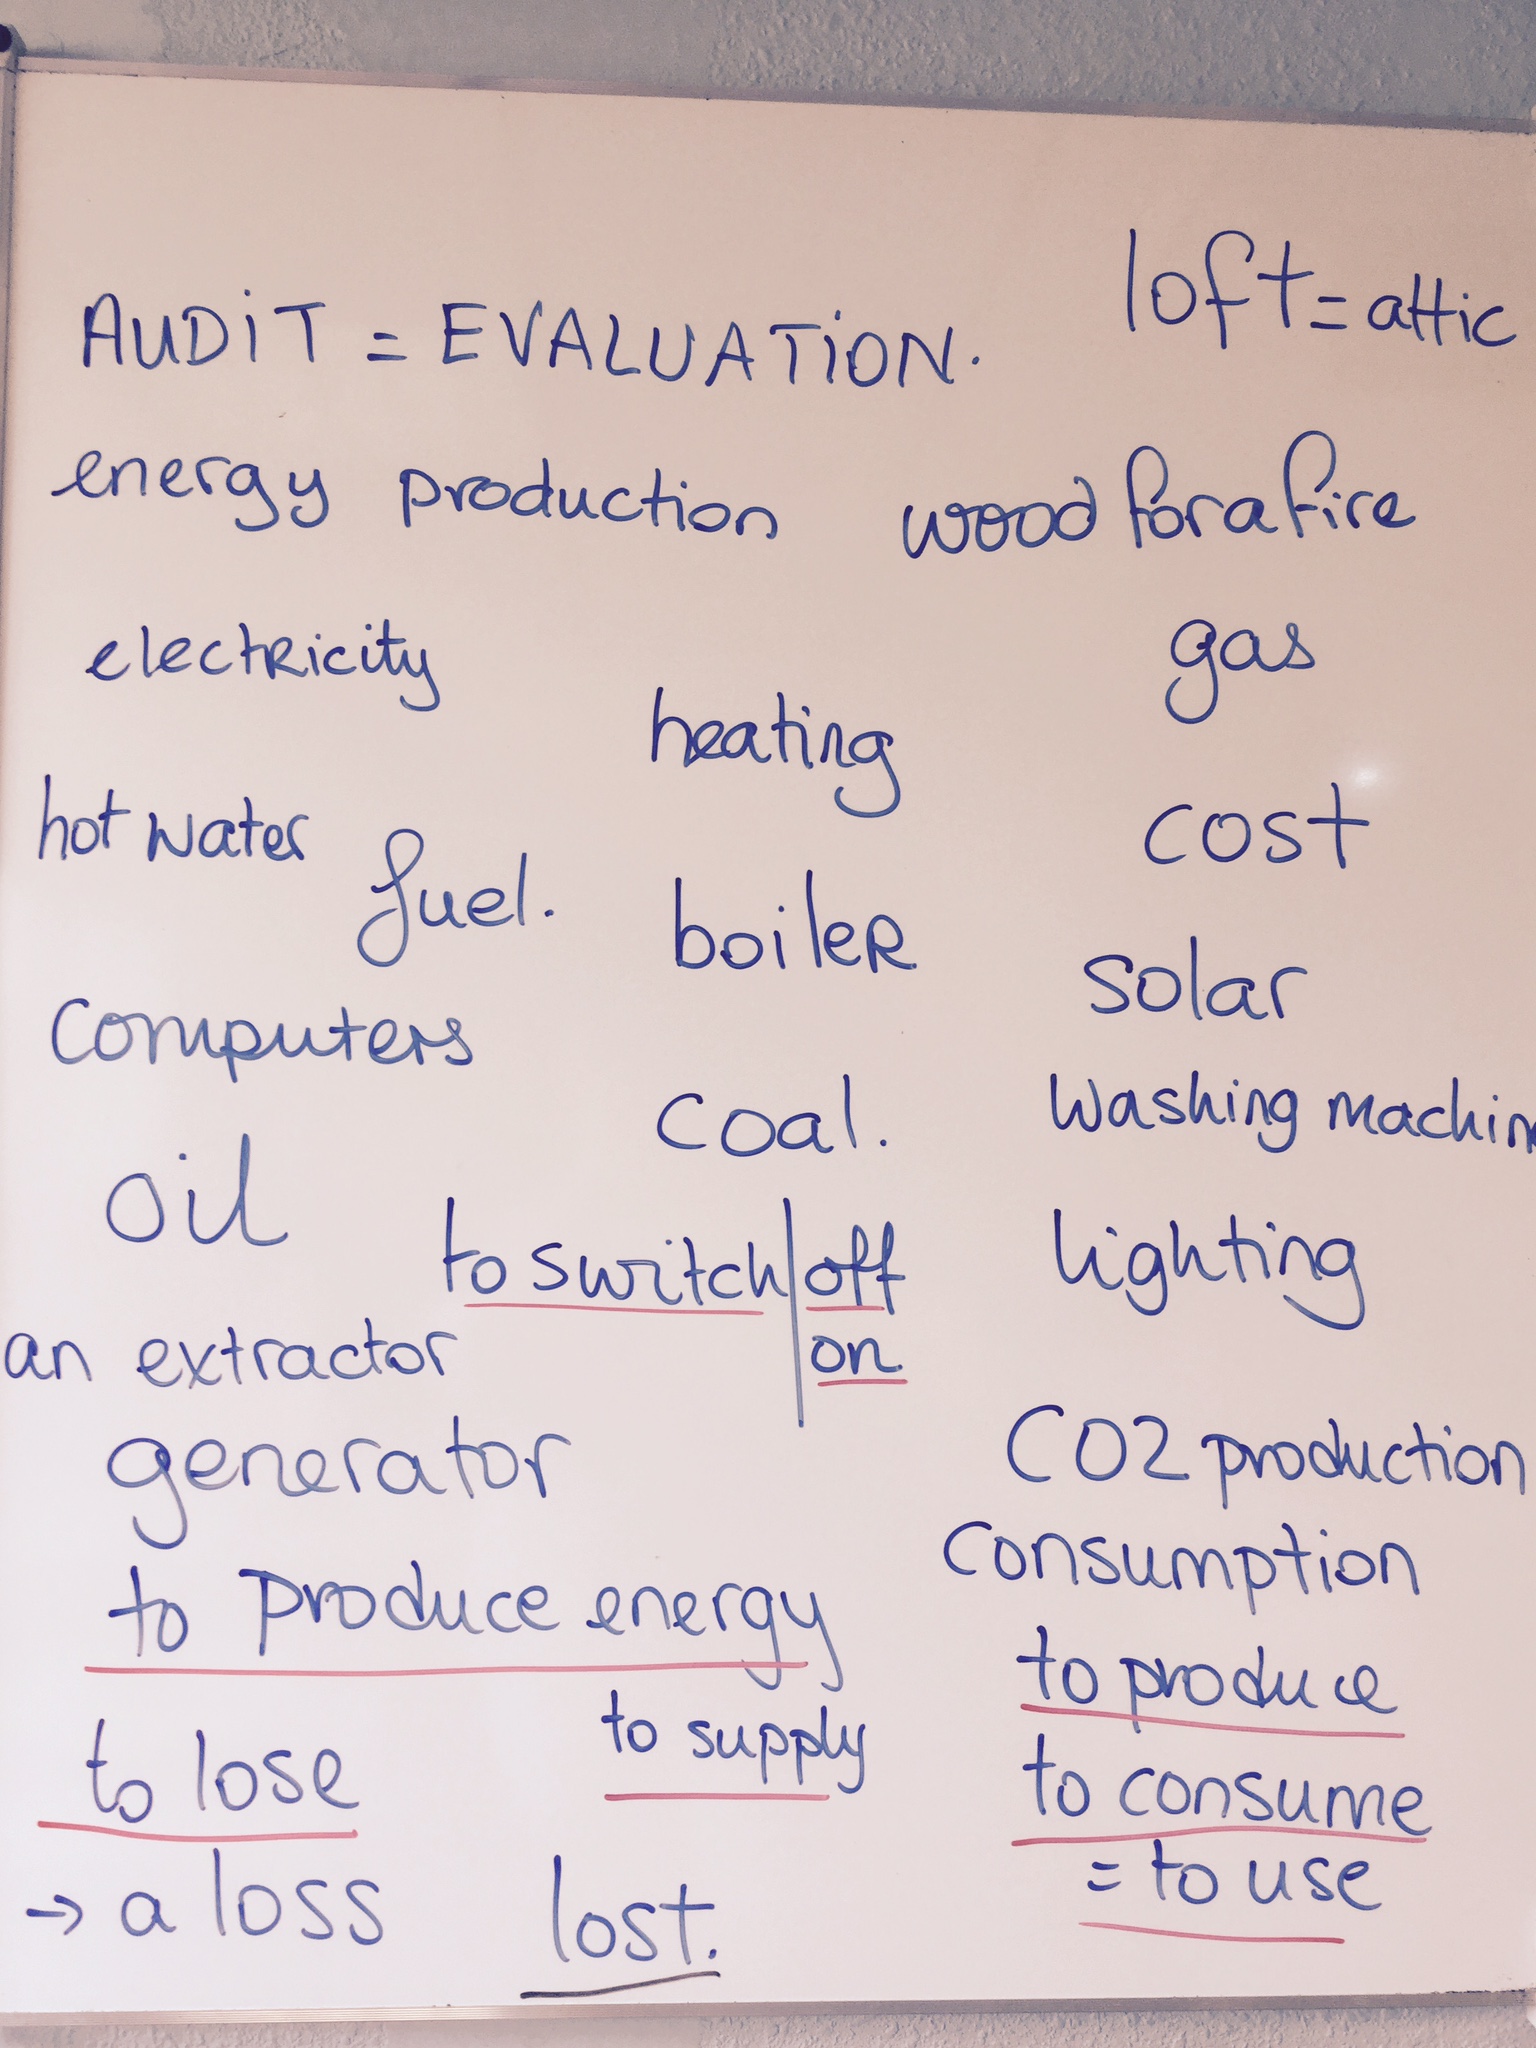 loft = attic
AUDiT = EVALUATiON.
energy production
wood for a fire
electricity
gas
heating
hot water
cost
fuel.
boiler
solar
computers
coal.
washing machin
oil
to switch off
on
lighting
an extractor
generator
CO2 production
consumption
to produce energy
to produce
to supply
to lose
to consume
= to use
→ a loss
lost.